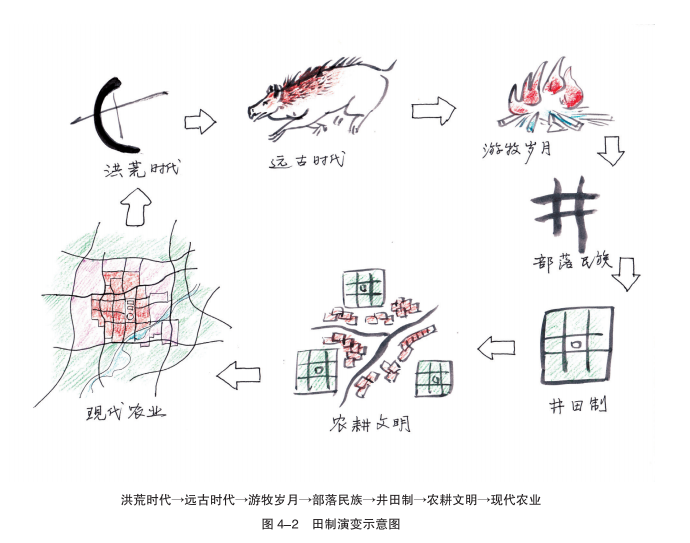 洪荒时代
远古时代
游牧岁月
部落民族
井田制
农耕文明
现代农业
洪荒时代→远古时代→游牧岁月→部落民族→井田制→农耕文明→现代农业
图 4–2 田制演变示意图